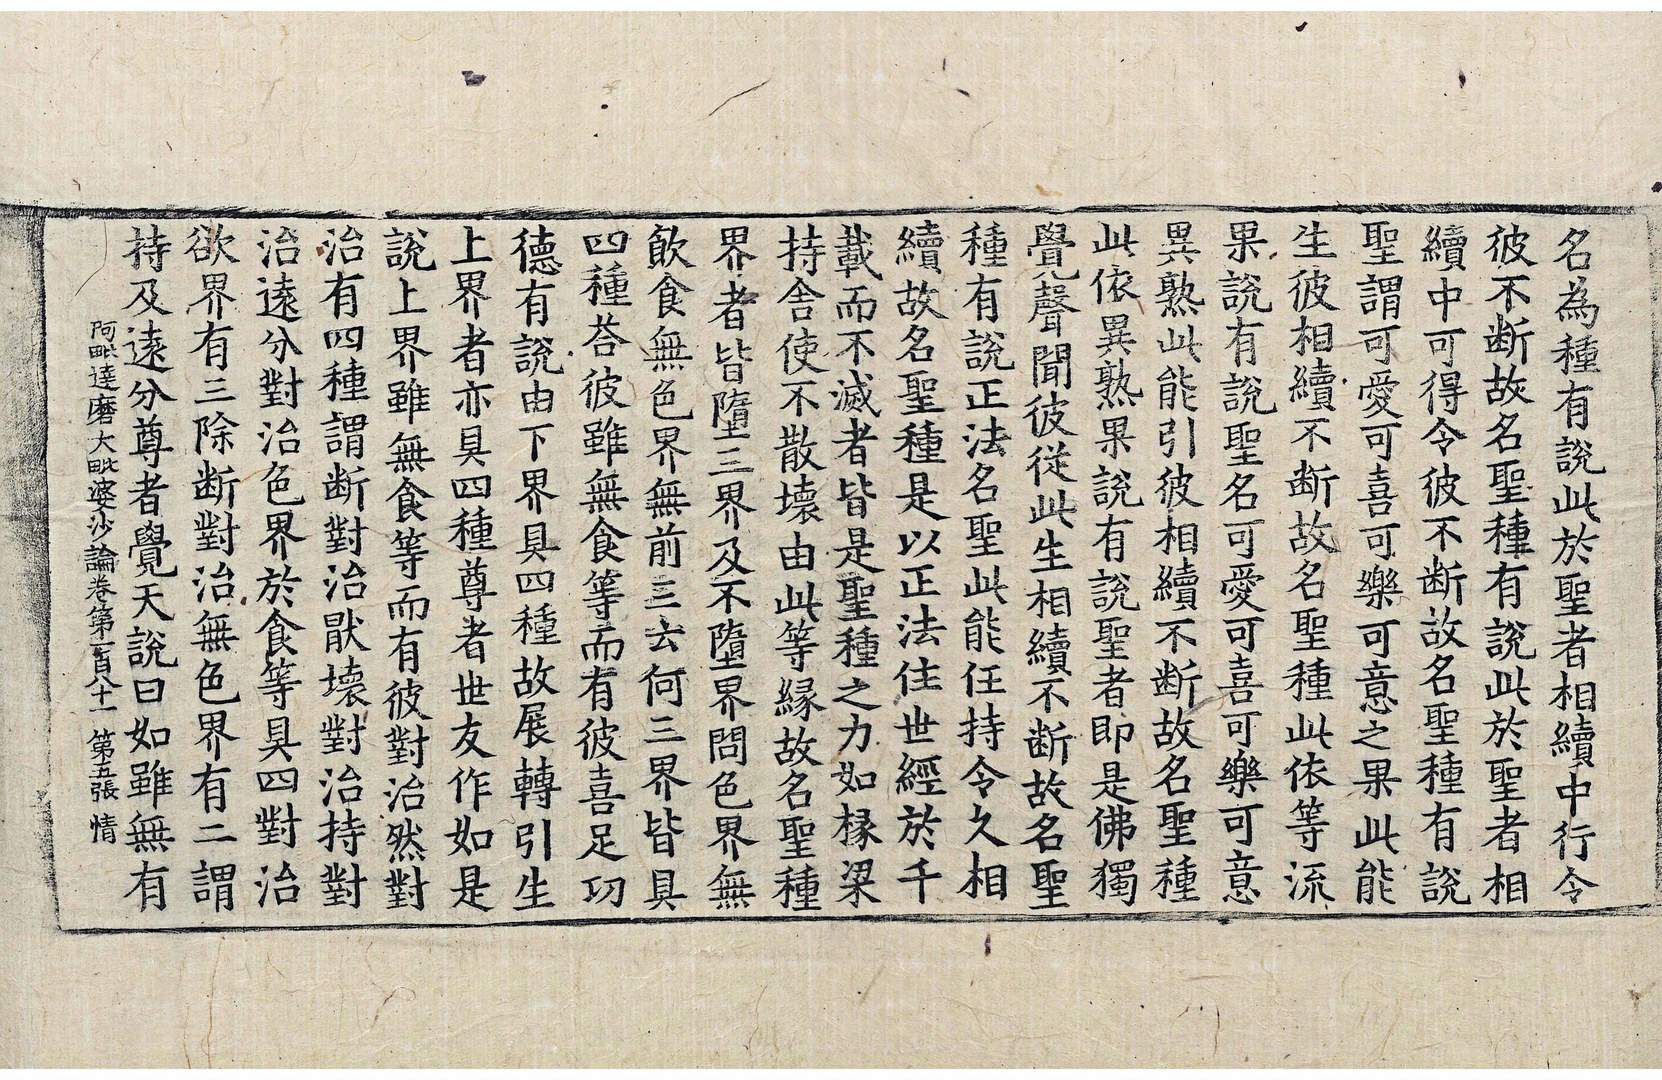 名為種有說此於聖者相續中行令
彼不断故名聖種有說此於聖者相
續中可得令彼不断故名聖種有說
聖謂可愛可喜可樂可意之果此能
生彼相續不断故名聖種此依等流
果說有說聖名可愛可喜可樂可意
異熟此能引彼相續不断故名聖種
此依異熟果說有說聖者即是佛獨
覺聲聞彼從此生相續不断故名聖
種有說正法名聖此能任持令久相
續故名聖種是以正法住世經於千
載而不滅者皆是聖種之力如椽梁
持舍使不散壞由此等縁故名聖種
界者皆墮三界及不墮界問色界無
飲食無色界無前三云何三界皆具
四種荅彼雖無食等而有彼喜足功
德有說由下界具四種故展轉引生
上界者亦具四種尊者世友作如是
說上界雖無食等而有彼對治然對
治有四種謂断對治猒壞對治持對
治遠分對治色界於食等具四對治
欲界有三除断對治無色界有二謂
持及遠分尊者覺天說曰如雖無有
阿毗達磨大毗婆沙論卷第一百八十一 第五張 情